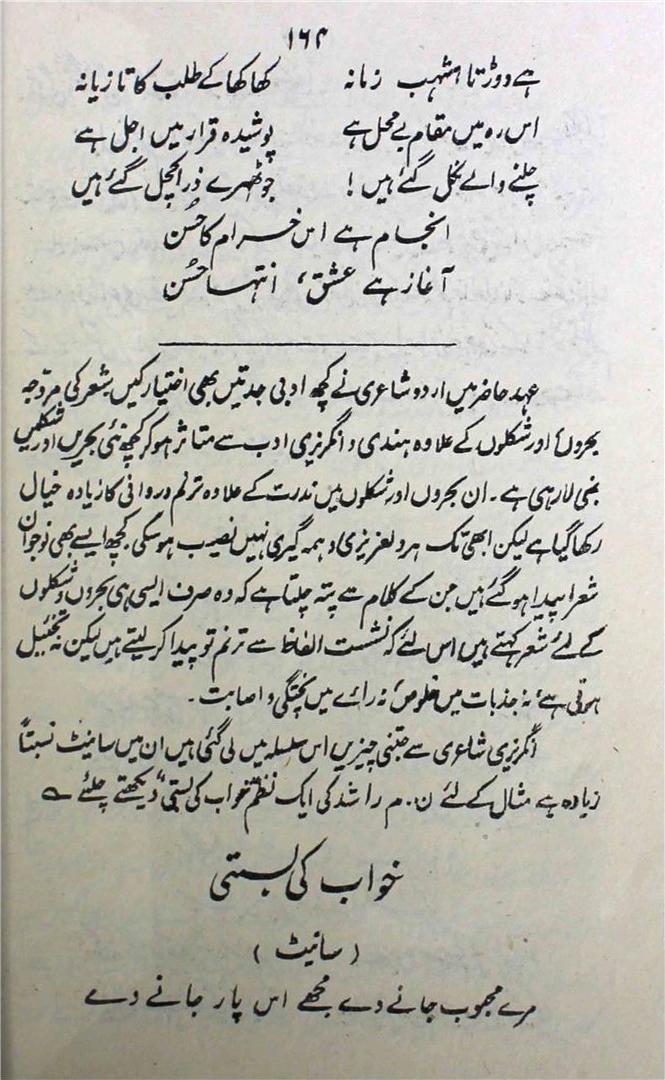 ۱۶۴
ہے دوڑتا اشہب زمانہ کھا کھا کے طلب کا تازیانہ
اس رہ میں مقام بے محل ہے پوشیدہ قرار میں اجل ہے
چلنے والے نکل گئے ہیں! جو ٹھہرے ذرا کچل گئے ہیں
انجام ہے اس خرام کا حُسن
آغاز ہے عشق، انتہا حُسن
عہد حاضر میں اردو شاعری نے کچھ ادبی جدتیں بھی اختیار کیں۔ شعر کی مروّجہ
بحروں اور شکلوں کے علاوہ ہندی و انگریزی ادب سے متاثر ہو کر کچھ نئی بحریں اور شکلیں
بھی لا رہی ہے۔ ان بحروں اور شکلوں میں ندرت کے علاوہ ترنم و روانی کا زیادہ خیال
رکھا گیا ہے لیکن ابھی تک ہر دلعزیزی و ہمہ گیری نہیں نصیب ہو سکی۔ کچھ ایسے بھی نوجوان
شعرا پیدا ہو گئے ہیں جن کے کلام سے پتہ چلتا ہے کہ وہ صرف ایسی ہی بحروں و شکلوں
کے لئے شعر کہتے ہیں اس لئے کہ نشست الفاظ سے ترنم تو پیدا کر لیتے ہیں لیکن نہ تخئیل
ہوتی ہے، نہ جذبات میں خلوص، نہ رائے میں پختگی و اصابت۔
انگریزی شاعری سے جتنی چیزیں اس سلسلہ میں لی گئی ہیں ان میں سانیٹ نسبتاً
زیادہ ہے مثال کے لئے ن۔ م راشد کی ایک نظم "خواب کی بستی" دیکھتے چلئے ؎
خواب کی بستی
(سانیٹ)
مرے محبوب جانے دے مجھے اس پار جانے دے